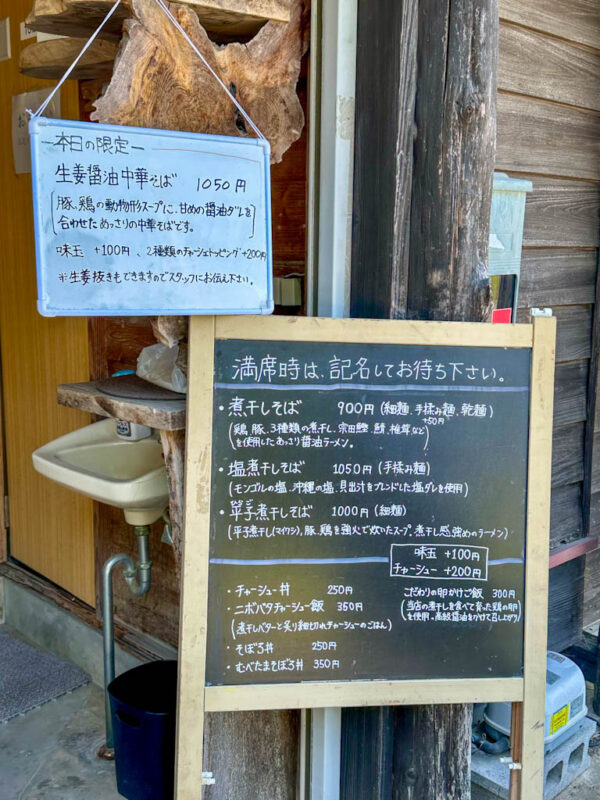 ―本日の限定―
生姜醤油中華そば 1050円
豚、鶏の動物形スープに、甘めの醤油ダレを
合わせたあっさりの中華そばです。
味玉 +100円、2種類のチャーシュートッピング+200円
※生姜抜きもできますのでスタッフにお伝え下さい。
満席時は、記名してお待ち下さい。
・煮干しそば 900円(細麺、手揉み麺、乾麺)
+50円
(鶏、豚、3種類の煮干し、宗田鰹、鯖、椎茸など
を使用したあっさり醤油ラーメン。)
・塩煮干しそば 1050円(手揉み麺)
(モンゴルの塩、沖縄の塩、貝出汁をブレンドした塩ダレを使用)
・平子煮干しそば 1000円(細麺)
(平子煮干し(マイワシ)、豚、鶏を強火で炊いたスープ、煮干し感強めのラーメン)
味玉 +100円
チャーシュー +200円
・チャーシュー丼 250円
・ニボバタチャーシュー飯 350円
(煮干しバターと炙り細切れチャーシューのごはん)
・そぼろ丼 250円
・むべたまそぼろ丼 350円
こだわりの卵かけご飯 300円
(当店の煮干しを食べて育った鶏の卵
を使用。高級醤油をかけて召し上がり)